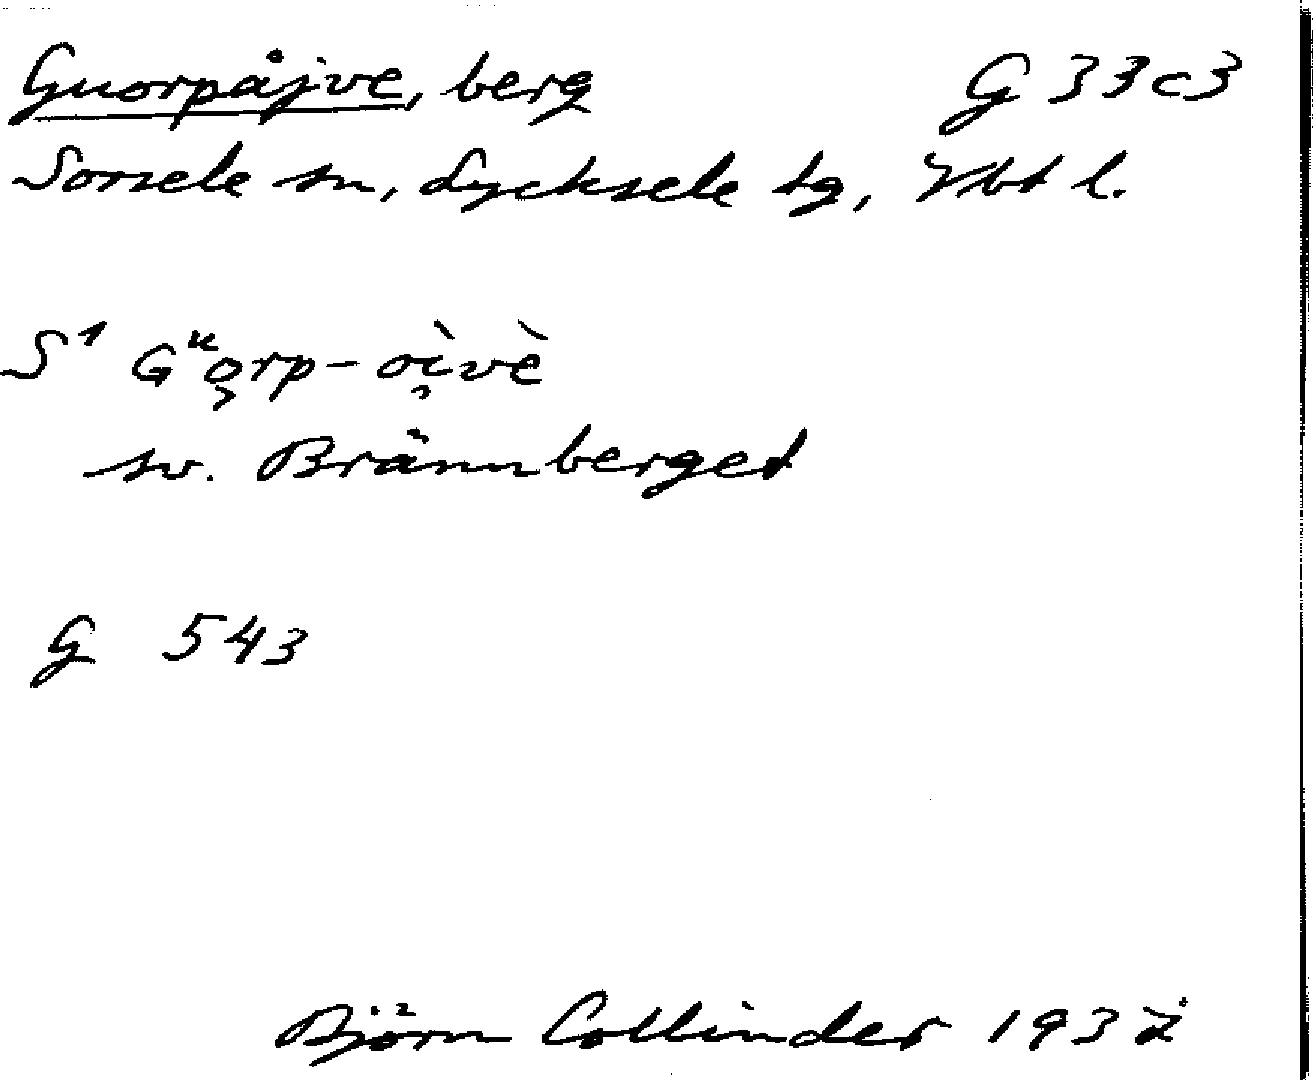 Guorpåjve, berg G 33c3
Sorsele sn, Lycksele tg, Vbt l.
S¹ Gᵘo̜rp-oì̯vè
sv. Brännberget
G 543
Björn Collinder 1937